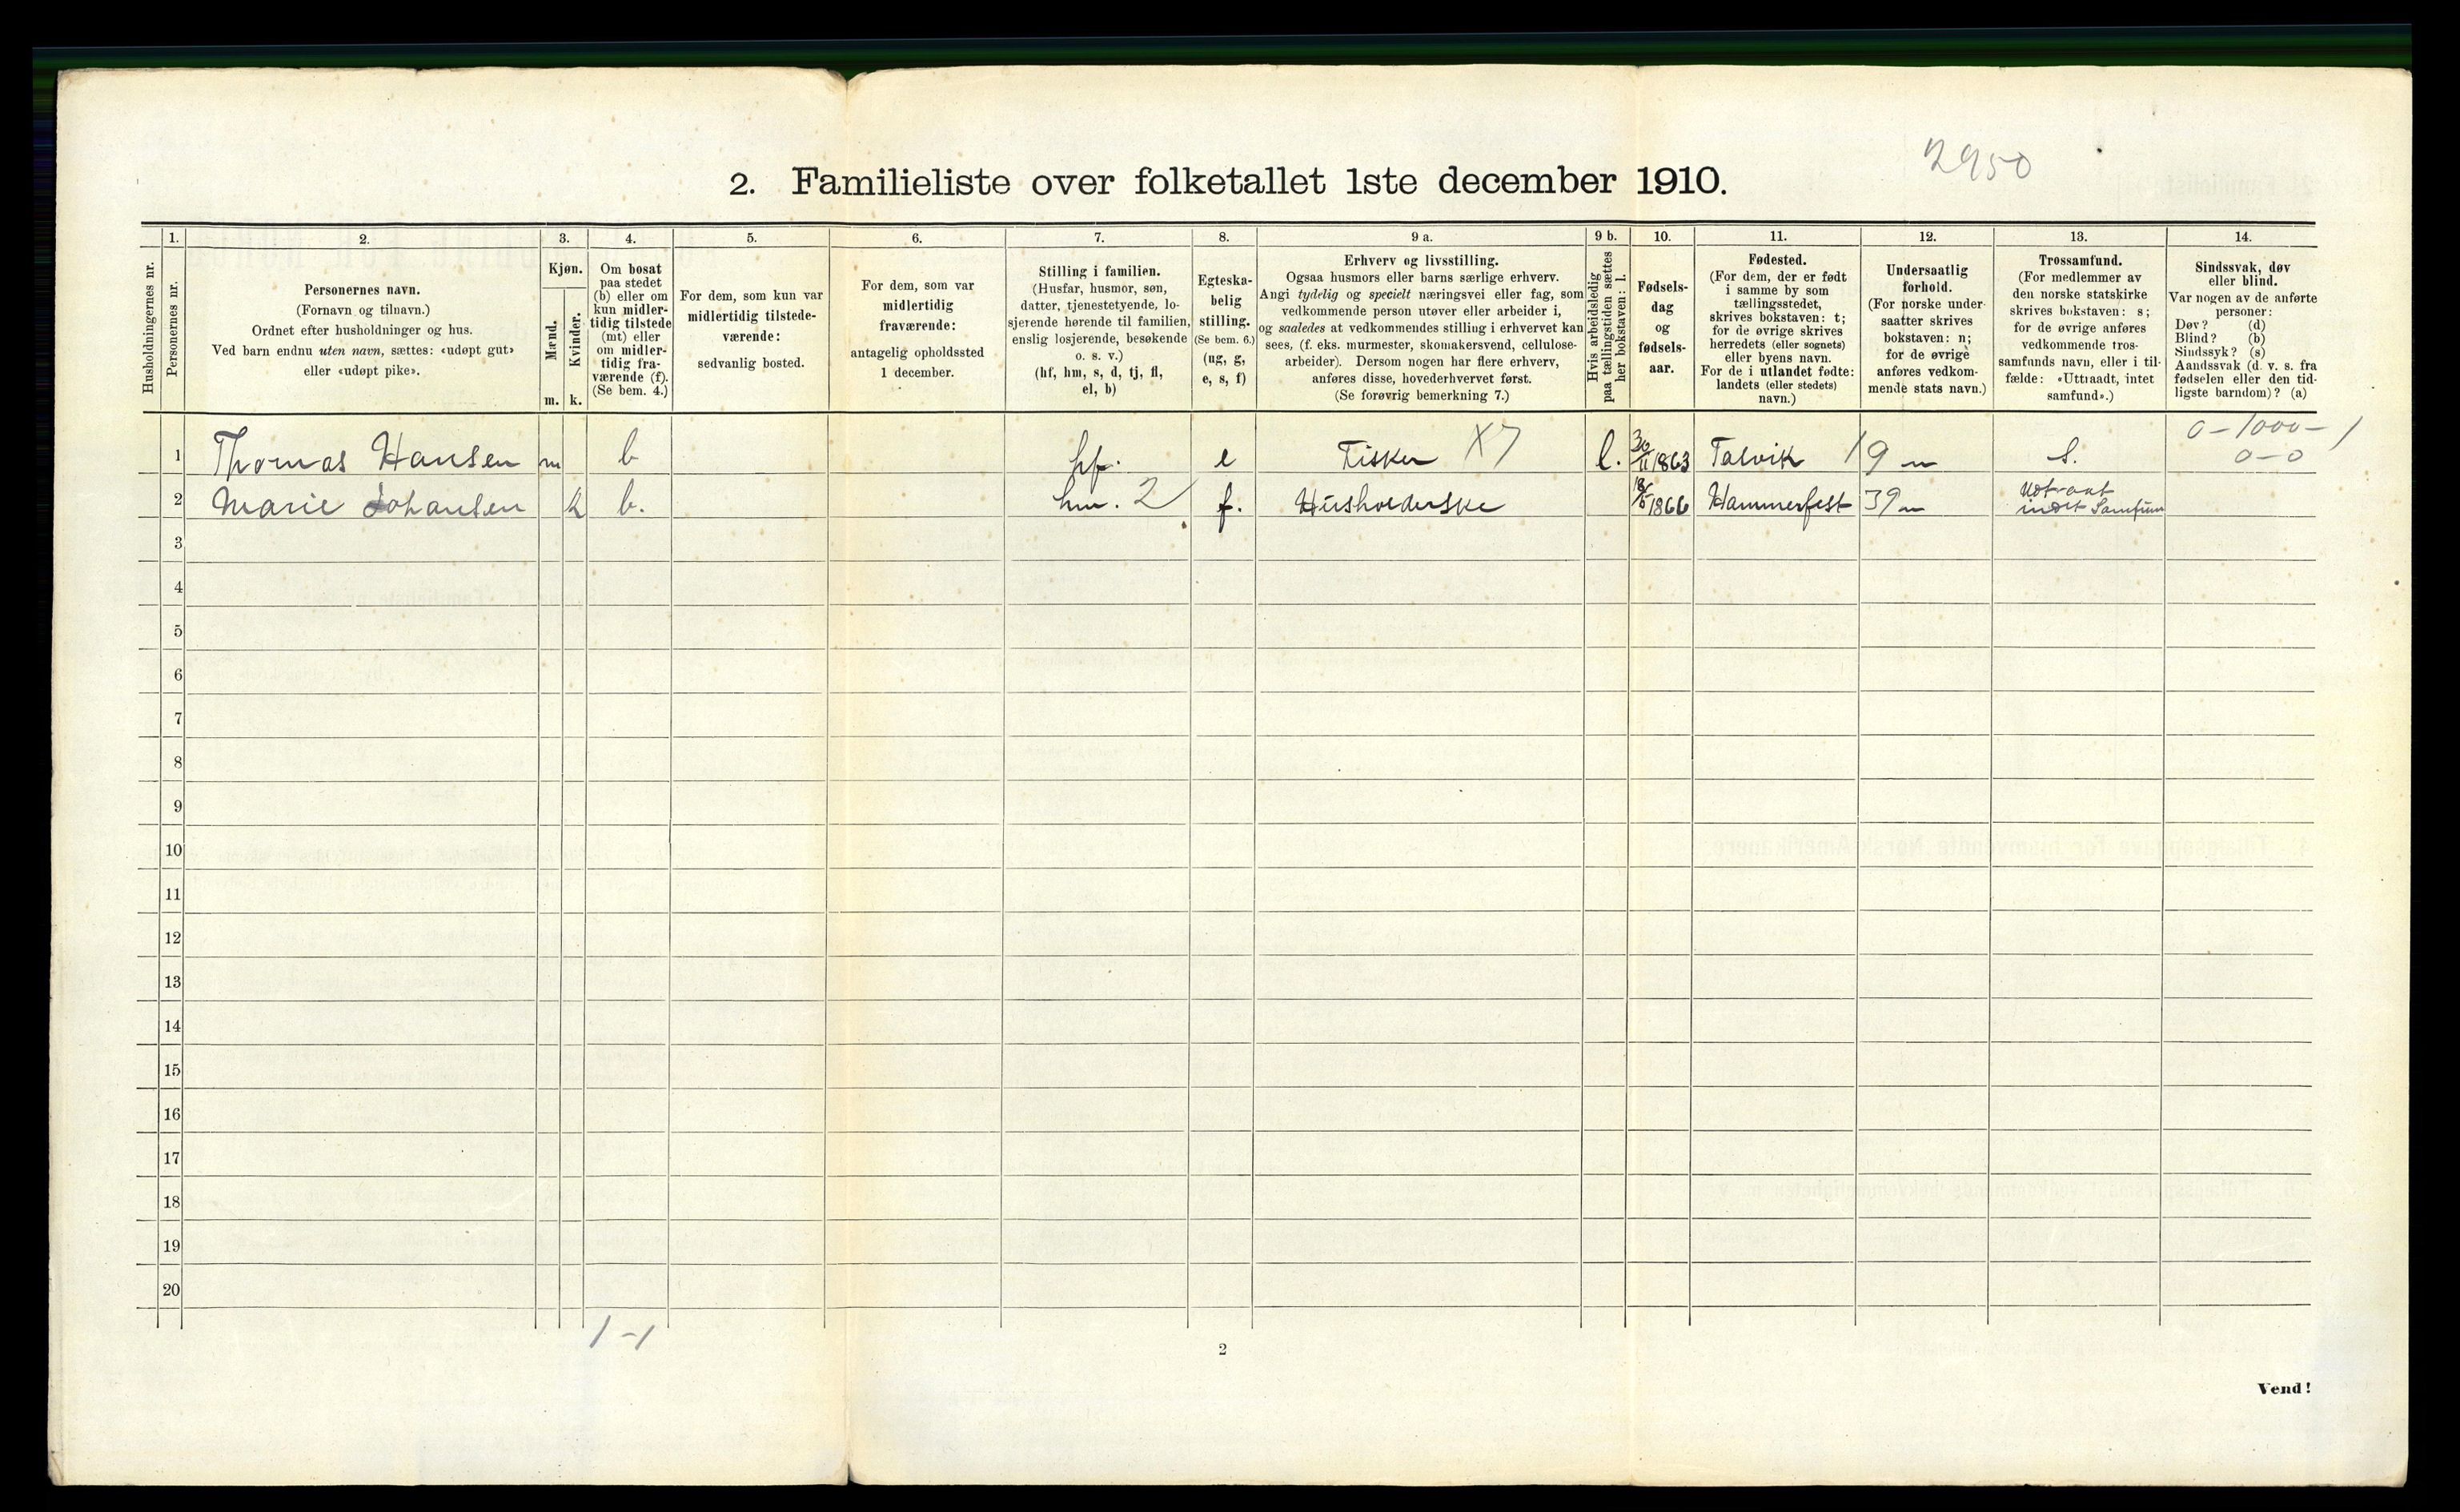 2950
2. Familieliste over folketallet 1ste december 1910.
Husholdningernes nr.
1.
Personernes nr.
2.
Personernes navn.
(Fornavn og tilnavn.)
Ordnet efter husholdninger og hus.
Ved barn endnu uten navn, sættes: «udøpt gut»
eller «udøpt pike».
3.
Kjøn.
Mænd.
m.
Kvinder.
k.
4.
Om bosat
paa stedet
(b) eller om
kun midler-
tidig tilstede
(mt) eller
om midler-
tidig fra-
værende (f).
(Se bem. 4.)
5.
For dem, som kun var
midlertidig tilstede-
værende:
sedvanlig bosted.
6.
For dem, som var
midlertidig
fraværende:
antagelig opholdssted
1 december.
7.
Stilling i familien.
(Husfar, husmor, søn,
datter, tjenestetyende, lo-
sjerende hørende til familien,
enslig losjerende, besøkende
o. s. v.)
(hf, hm, s, d, tj, fl,
el, b)
8.
Egteska-
belig
stilling.
(Se bem. 6.)
(ug, g,
e, s, f)
9 a.
Erhverv og livsstilling.
Ogsaa husmors eller barns særlige erhverv.
Angi tydelig og specielt næringsvei eller fag, som
vedkommende person utøver eller arbeider i,
og saaledes at vedkommendes stilling i erhvervet kan
sees, (f. eks. murmester, skomakersvend, cellulose-
arbeider). Dersom nogen har flere erhverv,
anføres disse, hovederhvervet først.
(Se forøvrig bemerkning 7.)
9 b.
Hvis arbeidsledig
paa tællingstiden sættes
her bokstaven: l.
10.
Fødsels-
dag
og
fødsels-
aar.
11.
Fødested.
(For dem, der er født
i samme by som
tællingsstedet,
skrives bokstaven: t;
for de øvrige skrives
herredets (eller sognets)
eller byens navn.
For de i utlandet fødte:
landets (eller stedets)
navn.)
12.
Undersaatlig
forhold.
(For norske under-
saatter skrives
bokstaven: n;
for de øvrige
anføres vedkom-
mende stats navn.)
13.
Trossamfund.
(For medlemmer av
den norske statskirke
skrives bokstaven: s;
for de øvrige anføres
vedkommende tros-
samfunds navn, eller i til-
fælde: «Uttraadt, intet
samfund».)
14.
Sindssvak, døv
eller blind.
Var nogen av de anførte
personer:
Døv? (d)
Blind? (b)
Sindssyk? (s)
Aandssvak (d. v. s. fra
fødselen eller den tid-
ligste barndom)? (a)
0-1000-1
1 Thomas Hansen m b hf. e Fisker X7 l. 30/11 1863 Talvik 19 n S. 0-0
2 Marie Johansen k b. hm. 2 f. Husholderske 18/5 1866 Hammerfest 39 n Udtraat
indet Samfun
3
4
5
6
7
8
9
10
11
12
13
14
15
16
17
18
19
20
1-1
2
Vend!